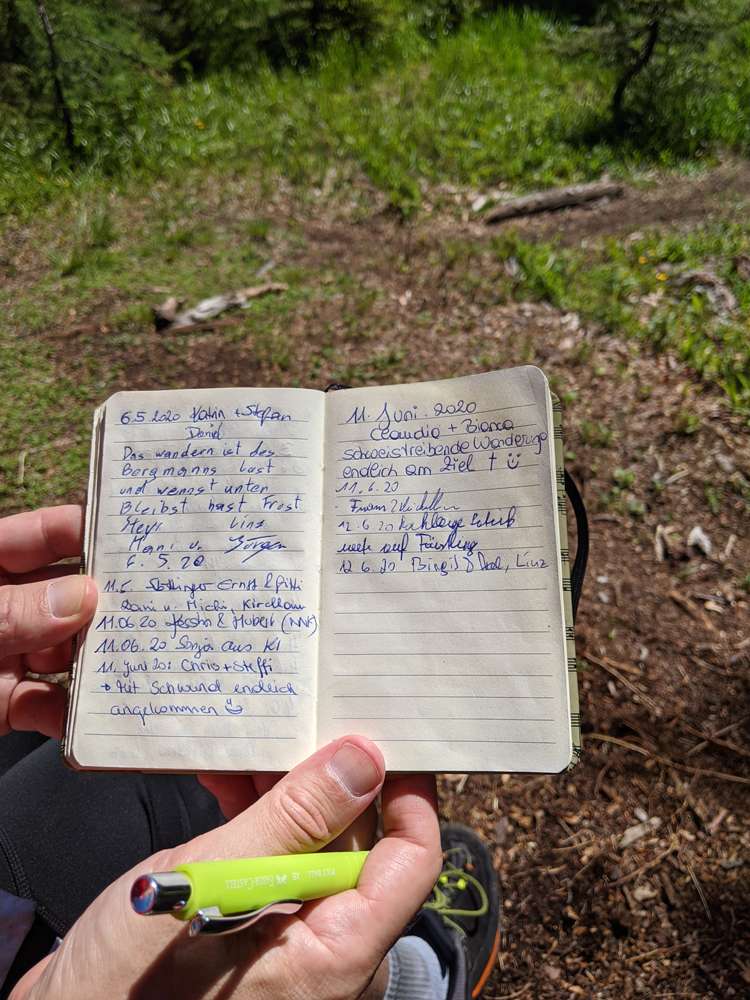 6.5.2020 Katrin + Stefan
Daniel
Das wandern ist des
Bergmanns Lust
und wennst unten
Bleibst hast Frost
Linz
Mani u. Jürgen
6.5.20
11.6. Ernst &
Dani u. Michi, Kirchham
11.06.20 & Hubert
11.06.20 Sonja aus KI
11. Juni 20: Chris + Steffi
→ Mit Schwund endlich
angekommen
11. Juni. 2020
Claudia + Bianca
schweistreibende Wanderung
endlich am Ziel
11.6.20
12.6.20
auf
12.6.20 Birgit & Linz
FABER-CASTELL